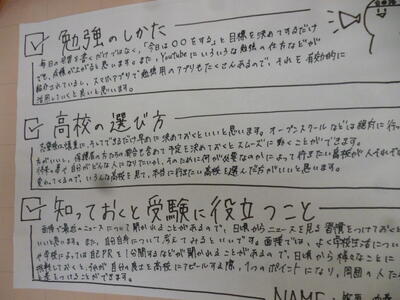 勉強のしかた
毎日の学習を書くだけではなく、「今日は〇〇をする」と目標を決めてするだけ
でも、成績が上がると思います。また、YouTubeにいろいろな勉強の仕方などが
紹介されているし、スマホアプリで勉強用のアプリもたくさんあるので、それを有効的に
活用していくと良いと思います。
高校の選び方
志望校は慎重に、そしてできるだけ早めに決めておくといいと思います。オープンスクールなどは絶対に行った
方がいいし、保護者の方たちの都合も含めて予定を決めておくとスムーズに動くことができます。
将来の夢や自分がどんな人になりたいか、そのために何が必要なのかによって行きたい高校が人それぞれ
変わってくるので、いろんな高校を見て、本当に行きたい高校を選んだ方がいいと思います。
知っておくと受験に役立つこと
面接で最近のニュースについて聞かれることがあるので、日頃からニュースを見る習慣をつけておくと
いいと思います。また、自分自身について考えてみるといいです。面接では、よく中学校生活につい
や学校によっては自己PRを1分間するなどが聞かれることがあるので、日頃から様々なことに
挑戦しておくと、それが自分の良さを高校にアピールする際、1つのポイントになり、周囲の人た
と差をつけることができます。
NAME